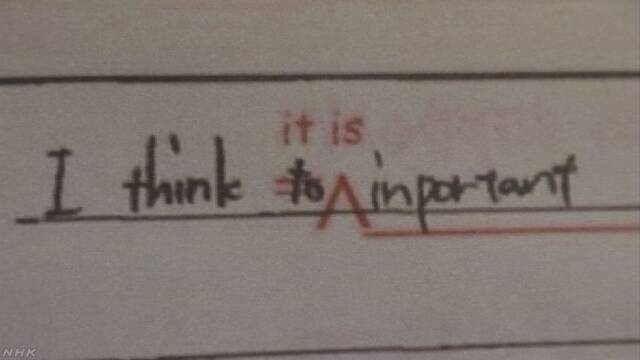 it is
I think to inportant
NHK